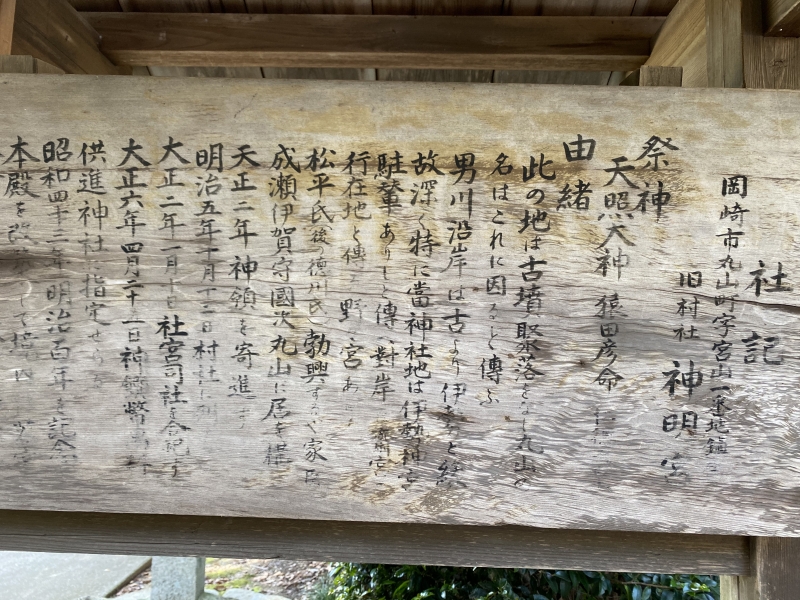 社記
岡崎市丸山町字宮山一番地鎮座
旧村社 神明宮
祭神
天照大神 猿田彦命
由緒
此の地は古墳聚落をなし丸山の
名はこれに因ると傳ふ
男川沿岸は古より伊勢と
故深く特に當神社地は伊勢
駐輦ありしと傳へ對岸
行在地と傳え野宮あ
松平氏後の徳川氏勃興するや家臣
成瀬伊賀守國次丸山に居を構
天正二年神領を寄進
明治五年十月十二日村社に列
大正二年一月十日社宮司社を合祀す
大正六年四月二十一日神饌幣
供進神社に指定せらる
昭和四十三年明治百年を記念
本殿を改築して